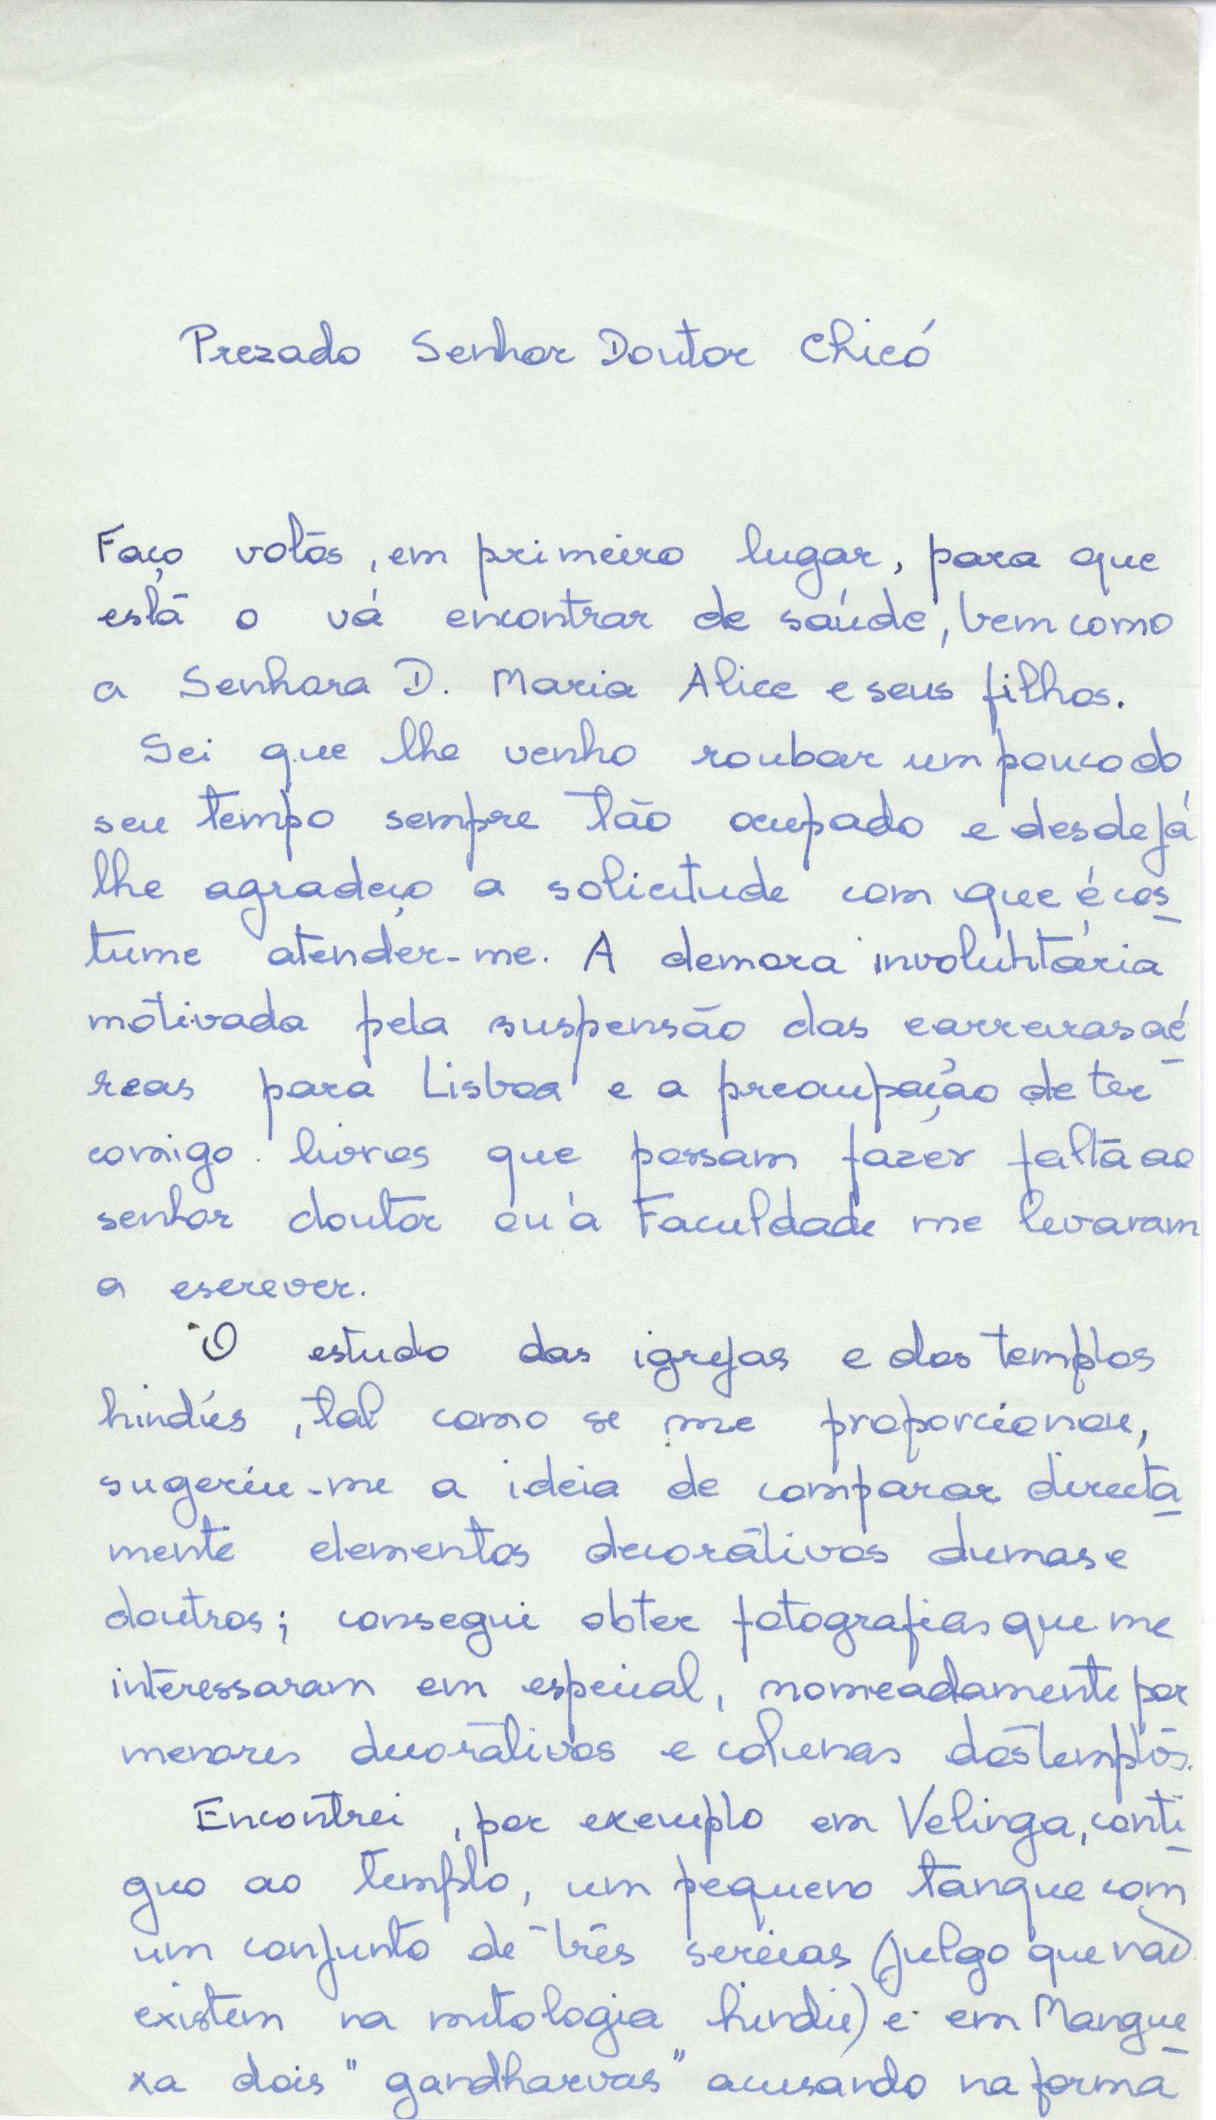 Prezado Senhor Doutor Chicó
Faço votos, em primeiro lugar, para que
esta o vá encontrar de saúde, bem como
a Senhora D. Maria Alice e seus filhos.
Sei que lhe venho roubar um pouco do
seu tempo sempre tão ocupado e desde já
lhe agradeço a solicitude com que é cos_
tume atender-me. A demora involuntária
motivada pela suspensão das carreiras aé_
reas para Lisboa e a preocupação de ter
comigo livros que possam fazer falta ao
senhor doutor ou à Faculdade me levaram
a escrever.
O estudo das igrejas e dos templos
hindús, tal como se me proporcionou,
sugeriu-me a ideia de comparar directa_
mente elementos decorativos dumas e
doutros; consegui obter fotografias que me
interessaram em especial, nomeadamente por
menores decorativos e colunas dos templos.
Encontrei, por exemplo em Velinga, conti_
guo ao templo, um pequeno tanque com
um conjunto de três sereias (julgo que não
existem na mitologia hindú) e em Mangue_
xa dois "gandharvas" acusando na forma